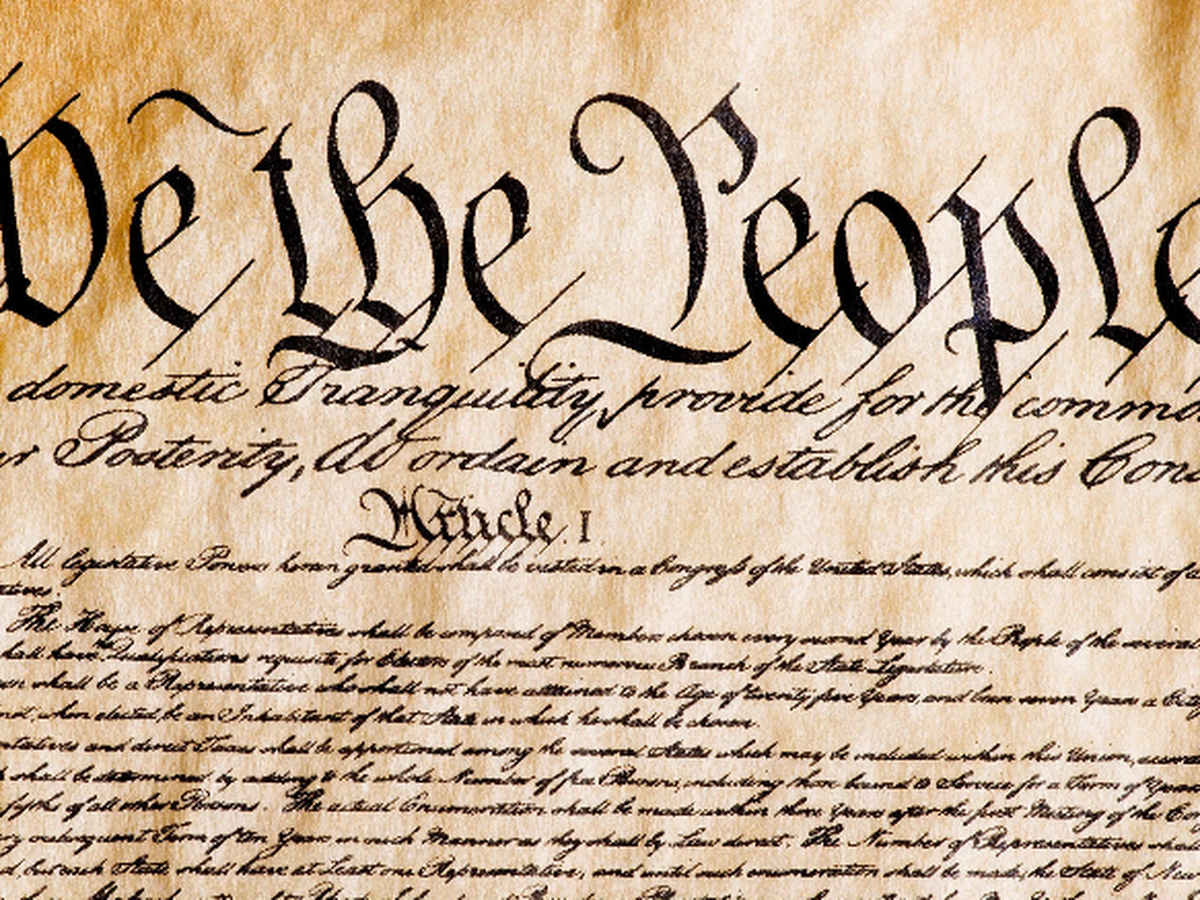 We the People
domestic Tranquility, provide for the commo
ur Posterity, do ordain and establish this Cons
Article. I.
All legislative Powers herein granted shall be vested in a Congress of the United States, which shall consist of a
tatives.
The House of Representatives shall be composed of Members chosen every second Year by the People of the several
shall have Qualifications requisite for Electors of the most numerous Branch of the State Legislature.
son shall be a Representative who shall not have attained to the Age of twenty five Years, and been seven Years a Citiz
and, when elected, be an Inhabitant of that State in which he shall be chosen.
ntatives and direct Taxes shall be apportioned among the several States which may be included within this Union, accord
h shall be determined by adding to the whole Number of free Persons, including those bound to Service for a Term of Years
fifths of all other Persons. The actual Enumeration shall be made within three Years after the first Meeting of the Co
ry subsequent Term of ten Years, in such Manner as they shall by Law direct. The Number of Representatives shall
d, but each State shall have at Least one Representative; and until such enumeration shall be made, the State of New